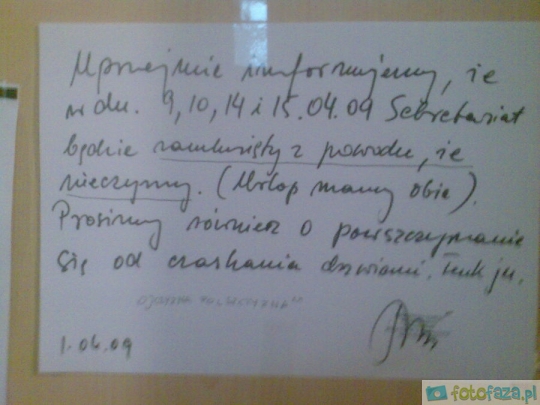 Uprzejmie informujemy, że
w dn. 9, 10, 14 i 15.04.09 Sekretariat
będzie zamknięty z powodu, że
nieczynny. (Urlop mamy obie).
Prosimy również o powszczymanie
się od czaskania drzwiami. Tenk ju.
1.04.09
fotofaza.pl